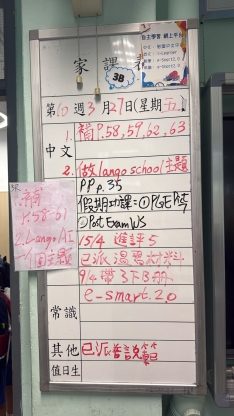 家課
3B
自主學習 網上平台
第10週3月27日(星期五)
中文
1. 補P.58,59,62,63
2. 做Lango school主題
PP p.35
假期功課=①PGE
②Post Exam WS
15/4 進評5
已派溫習材料
9/4 帶3下B冊
e-smart.20
常識
其他
值日生
1.補
P.58-61
2.Lango AI
一個主題